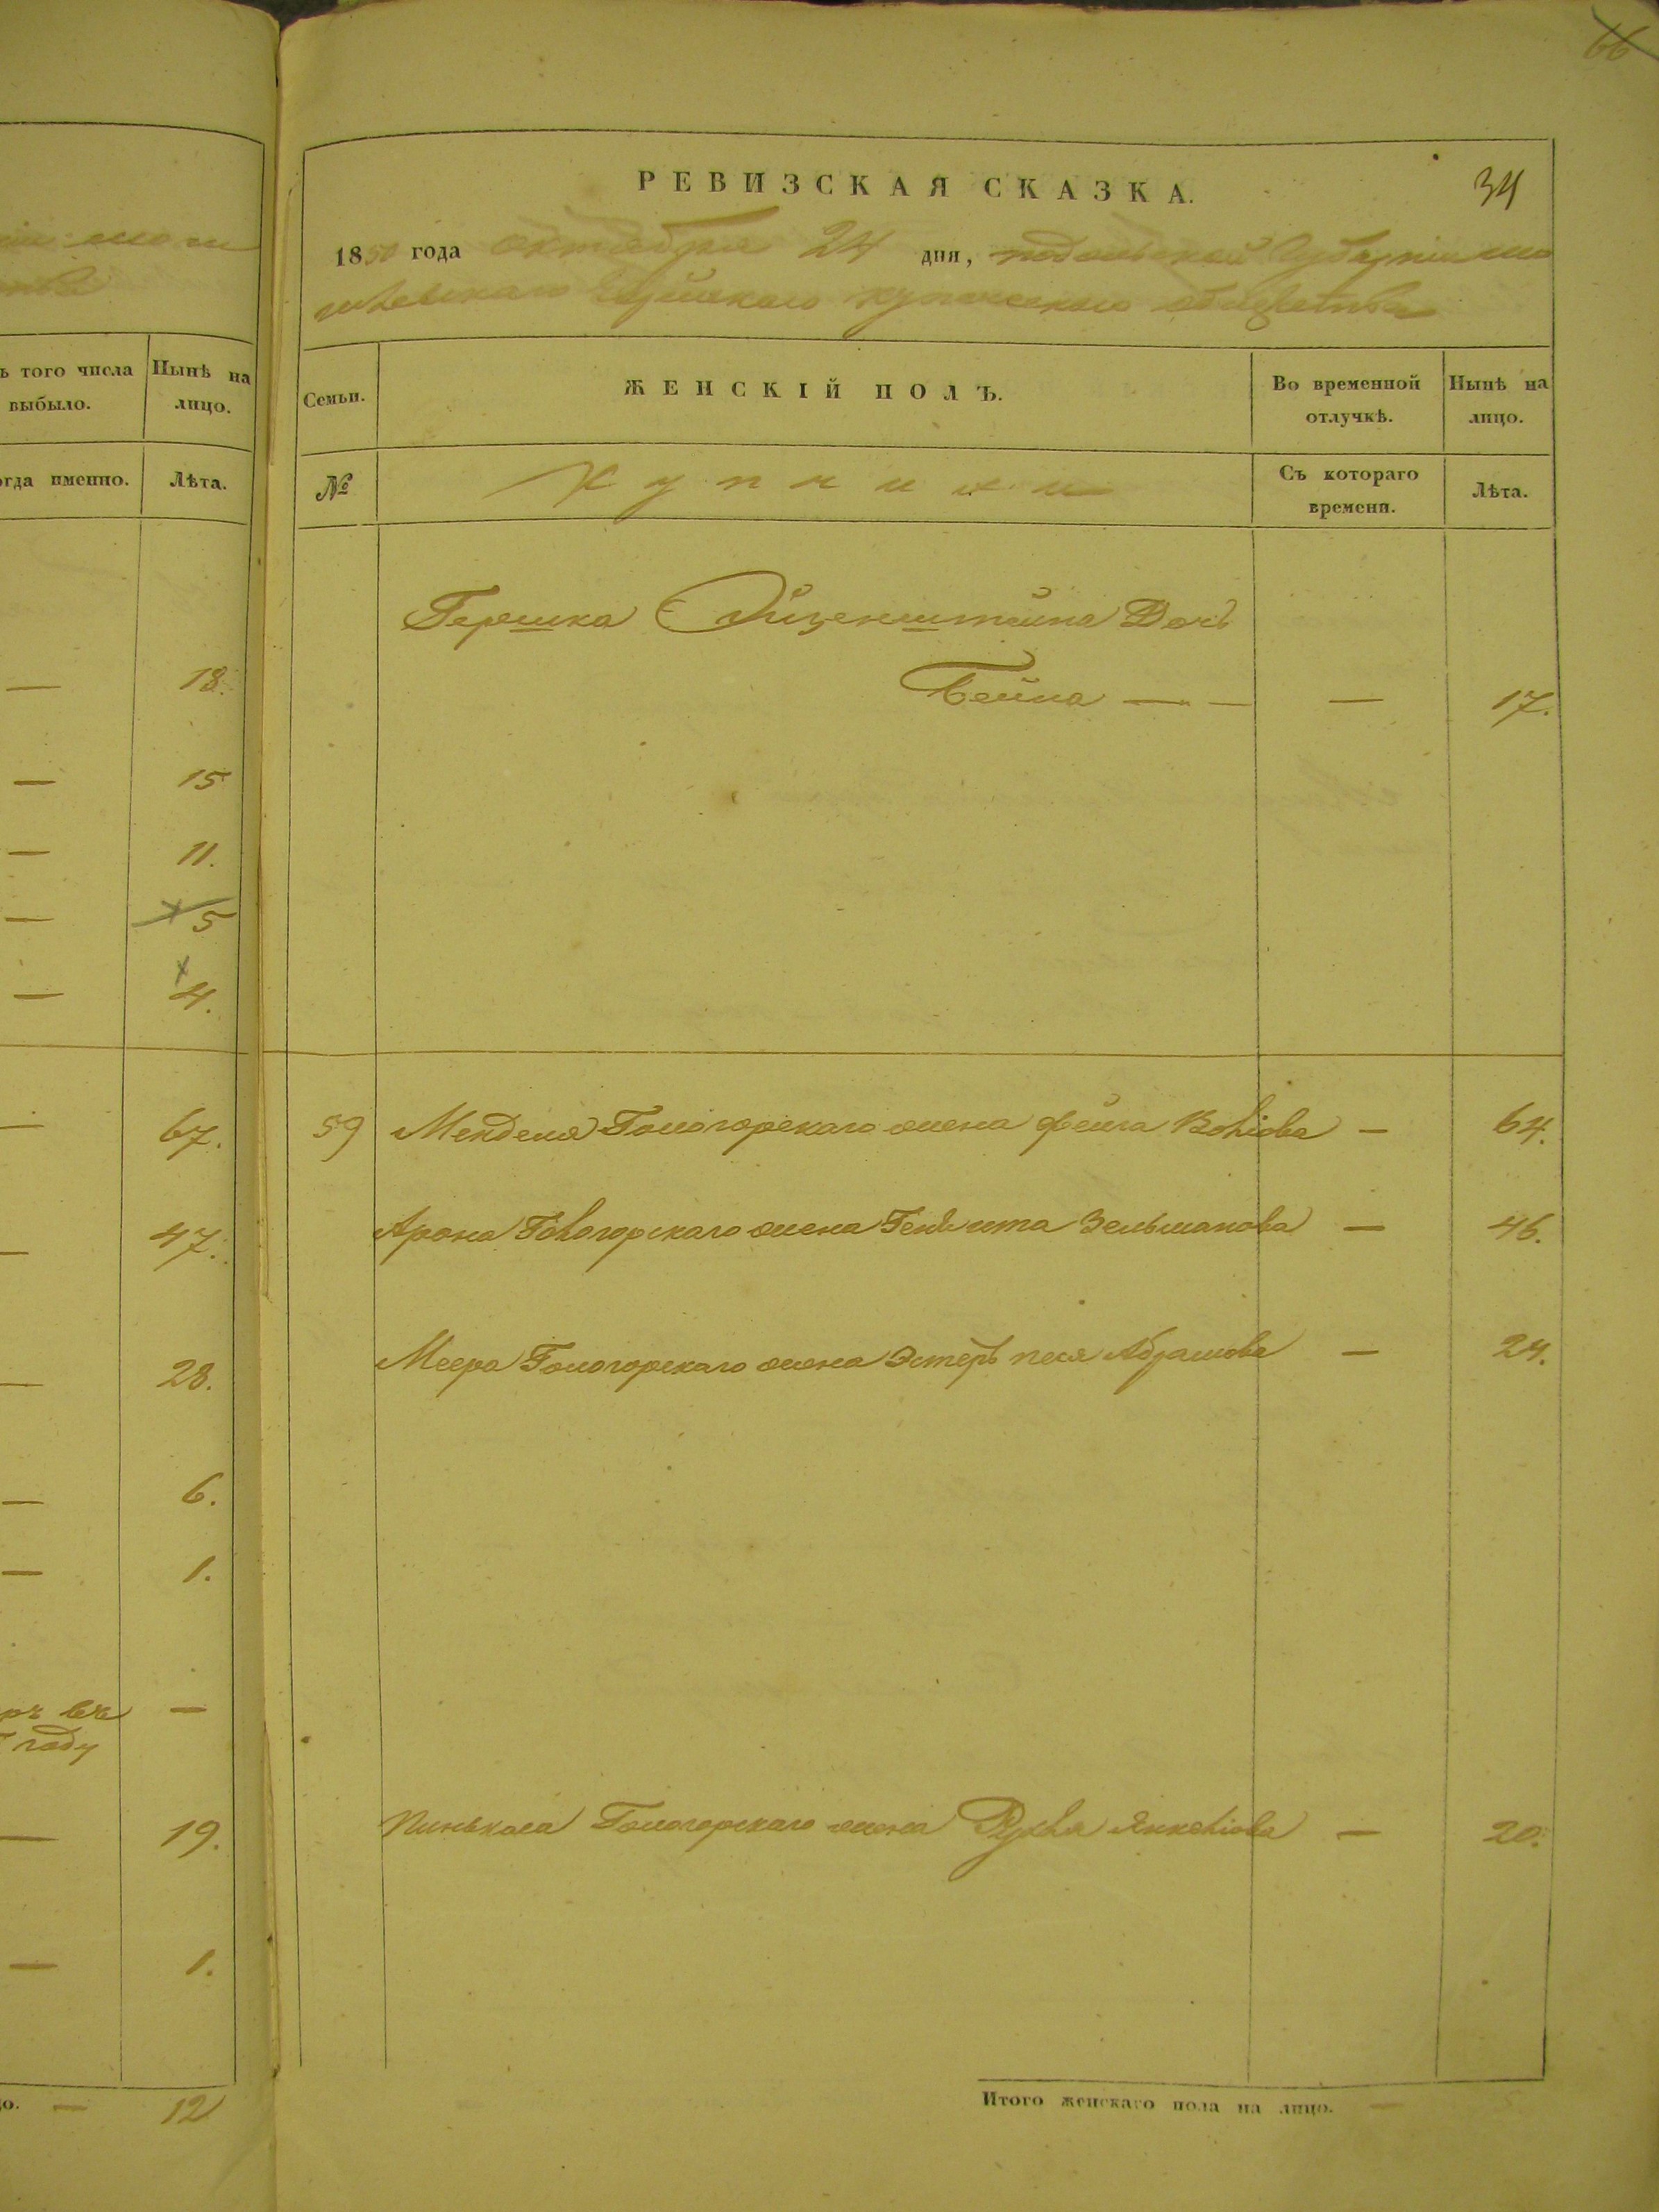 66
РЕВИЗСКАЯ СКАЗКА.
34
1850 года октября 24 дня, подольской Губерніи мо
гилевскаго Еврейскаго купеческаго общества
ъ того числа
выбыло.
Нынѣ на
лицо.
огда именно.
Лѣта.
Семьи.
ЖЕНСКІЙ ПОЛЪ.
Во временной
отлучкѣ.
Нынѣ на
лицо.
№
Купчихи
Съ котораго
времени.
Лѣта.
Гершка Эйценштейна Дочь
Бейла — — — 17.
— 18.
— 15
— 11.
— 5
— 4.
59 Менделя Гологорскаго жена фейга Волiова — 64.
Арона Гологорскаго жена Зельманова — 46.
Меера Гологорскаго жена Эстеръ песя Абрамова — 24.
Пинькаса Гологорскаго жена Рухля Янкелiова — 20.
— 67.
— 47.
— 28.
— 6.
— 1.
ръ въ —
году
— 19.
— 1.
о. — 12
Итого женскаго пола на лицо. —